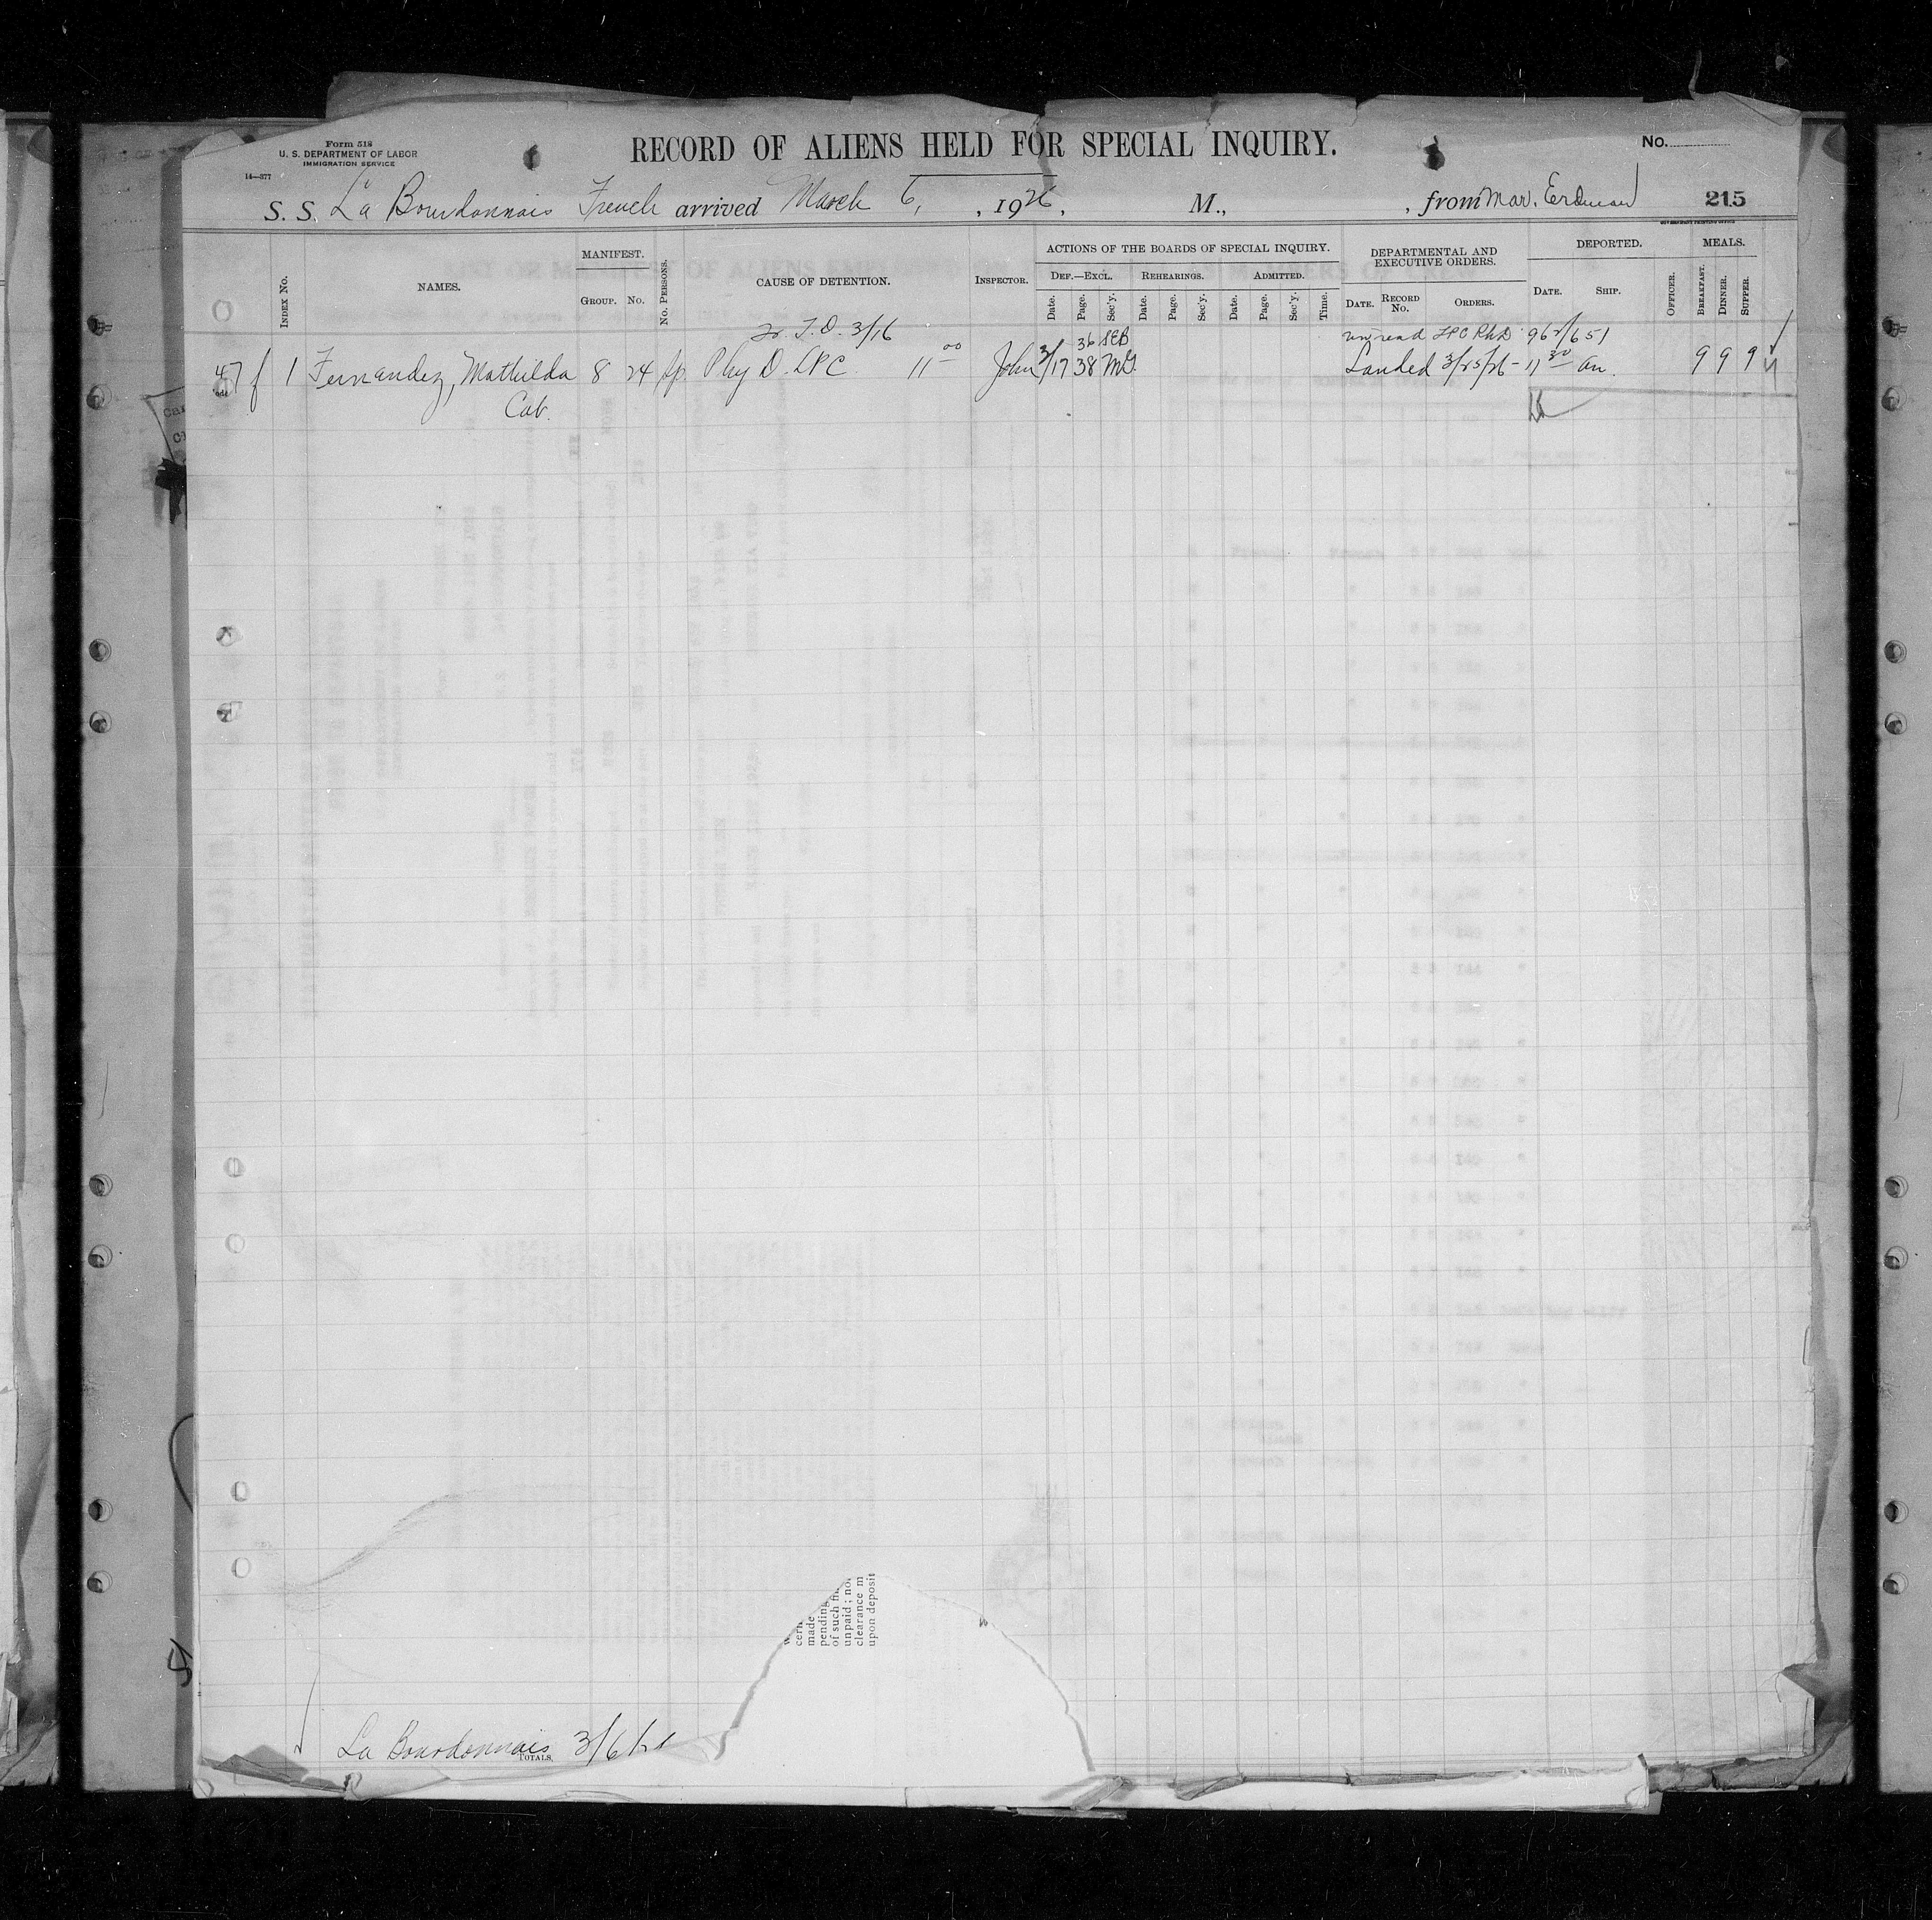 Form 518
U. S. DEPARTMENT OF LABOR
IMMIGRATION SERVICE
14—377
RECORD OF ALIENS HELD FOR SPECIAL INQUIRY.
No.
S. S. La Bourdonnais French arrived March 6, , 1926, M., , from Mar. Erdman 215
GOVERNMENT PRINTING OFFICE
INDEX No.
NAMES.
MANIFEST.
GROUP. No.
No. PERSONS.
CAUSE OF DETENTION.
INSPECTOR.
ACTIONS OF THE BOARDS OF SPECIAL INQUIRY.
DEF.—EXCL. REHEARINGS. ADMITTED.
Date. Page. Sec'y. Date. Page. Sec'y. Date. Page. Sec'y. Time.
DEPARTMENTAL AND
EXECUTIVE ORDERS.
DATE. RECORD No. ORDERS.
DEPORTED.
DATE. SHIP.
OFFICER.
MEALS.
BREAKFAST. DINNER. SUPPER.
T. D. 3/16 36 SEB LPC PhD 962/651
47 f 1 Fernandez, Mathilda 8 24 Sp. Phy D. LPC 11 00 John 3/17 38 McG. Landed 3/25/26 - 11 30 an. 9 9 9
Cab.
cern
made
pending
of such fin
unpaid; no
clearance m
upon deposit
La Bourdonnais 3/6/26
TOTALS.